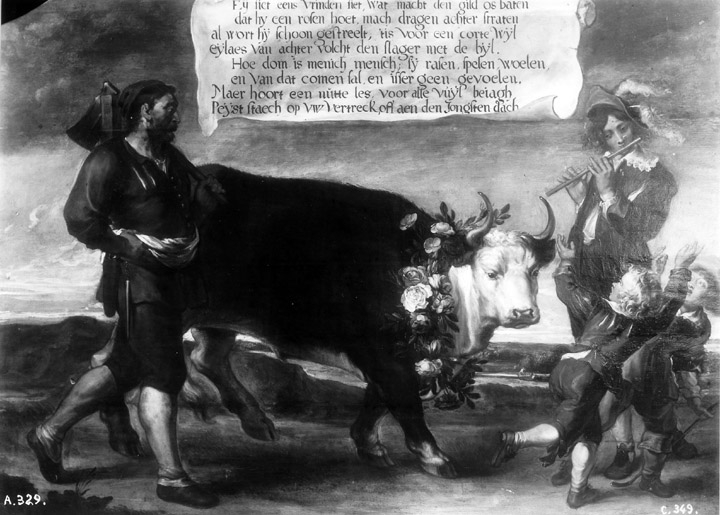 Ey siet eens vrinden siet, wat macht den gild os baten
dat hy een rosen hoet, mach dragen achter straten
al wort hy schoon gestreelt, tis voor een corte wyl
Eylaes van achter volcht den slager met de byl.
Hoe dom is menich mensch, sy rasen, spelen woelen,
en van dat comen sal, en isser geen gevoelen,
Maer hoort een nutte les, voor alle vuyl bejagh,
Peyst staech op uw vertreck off aen den Jongsten dach
A.329.
C.349.